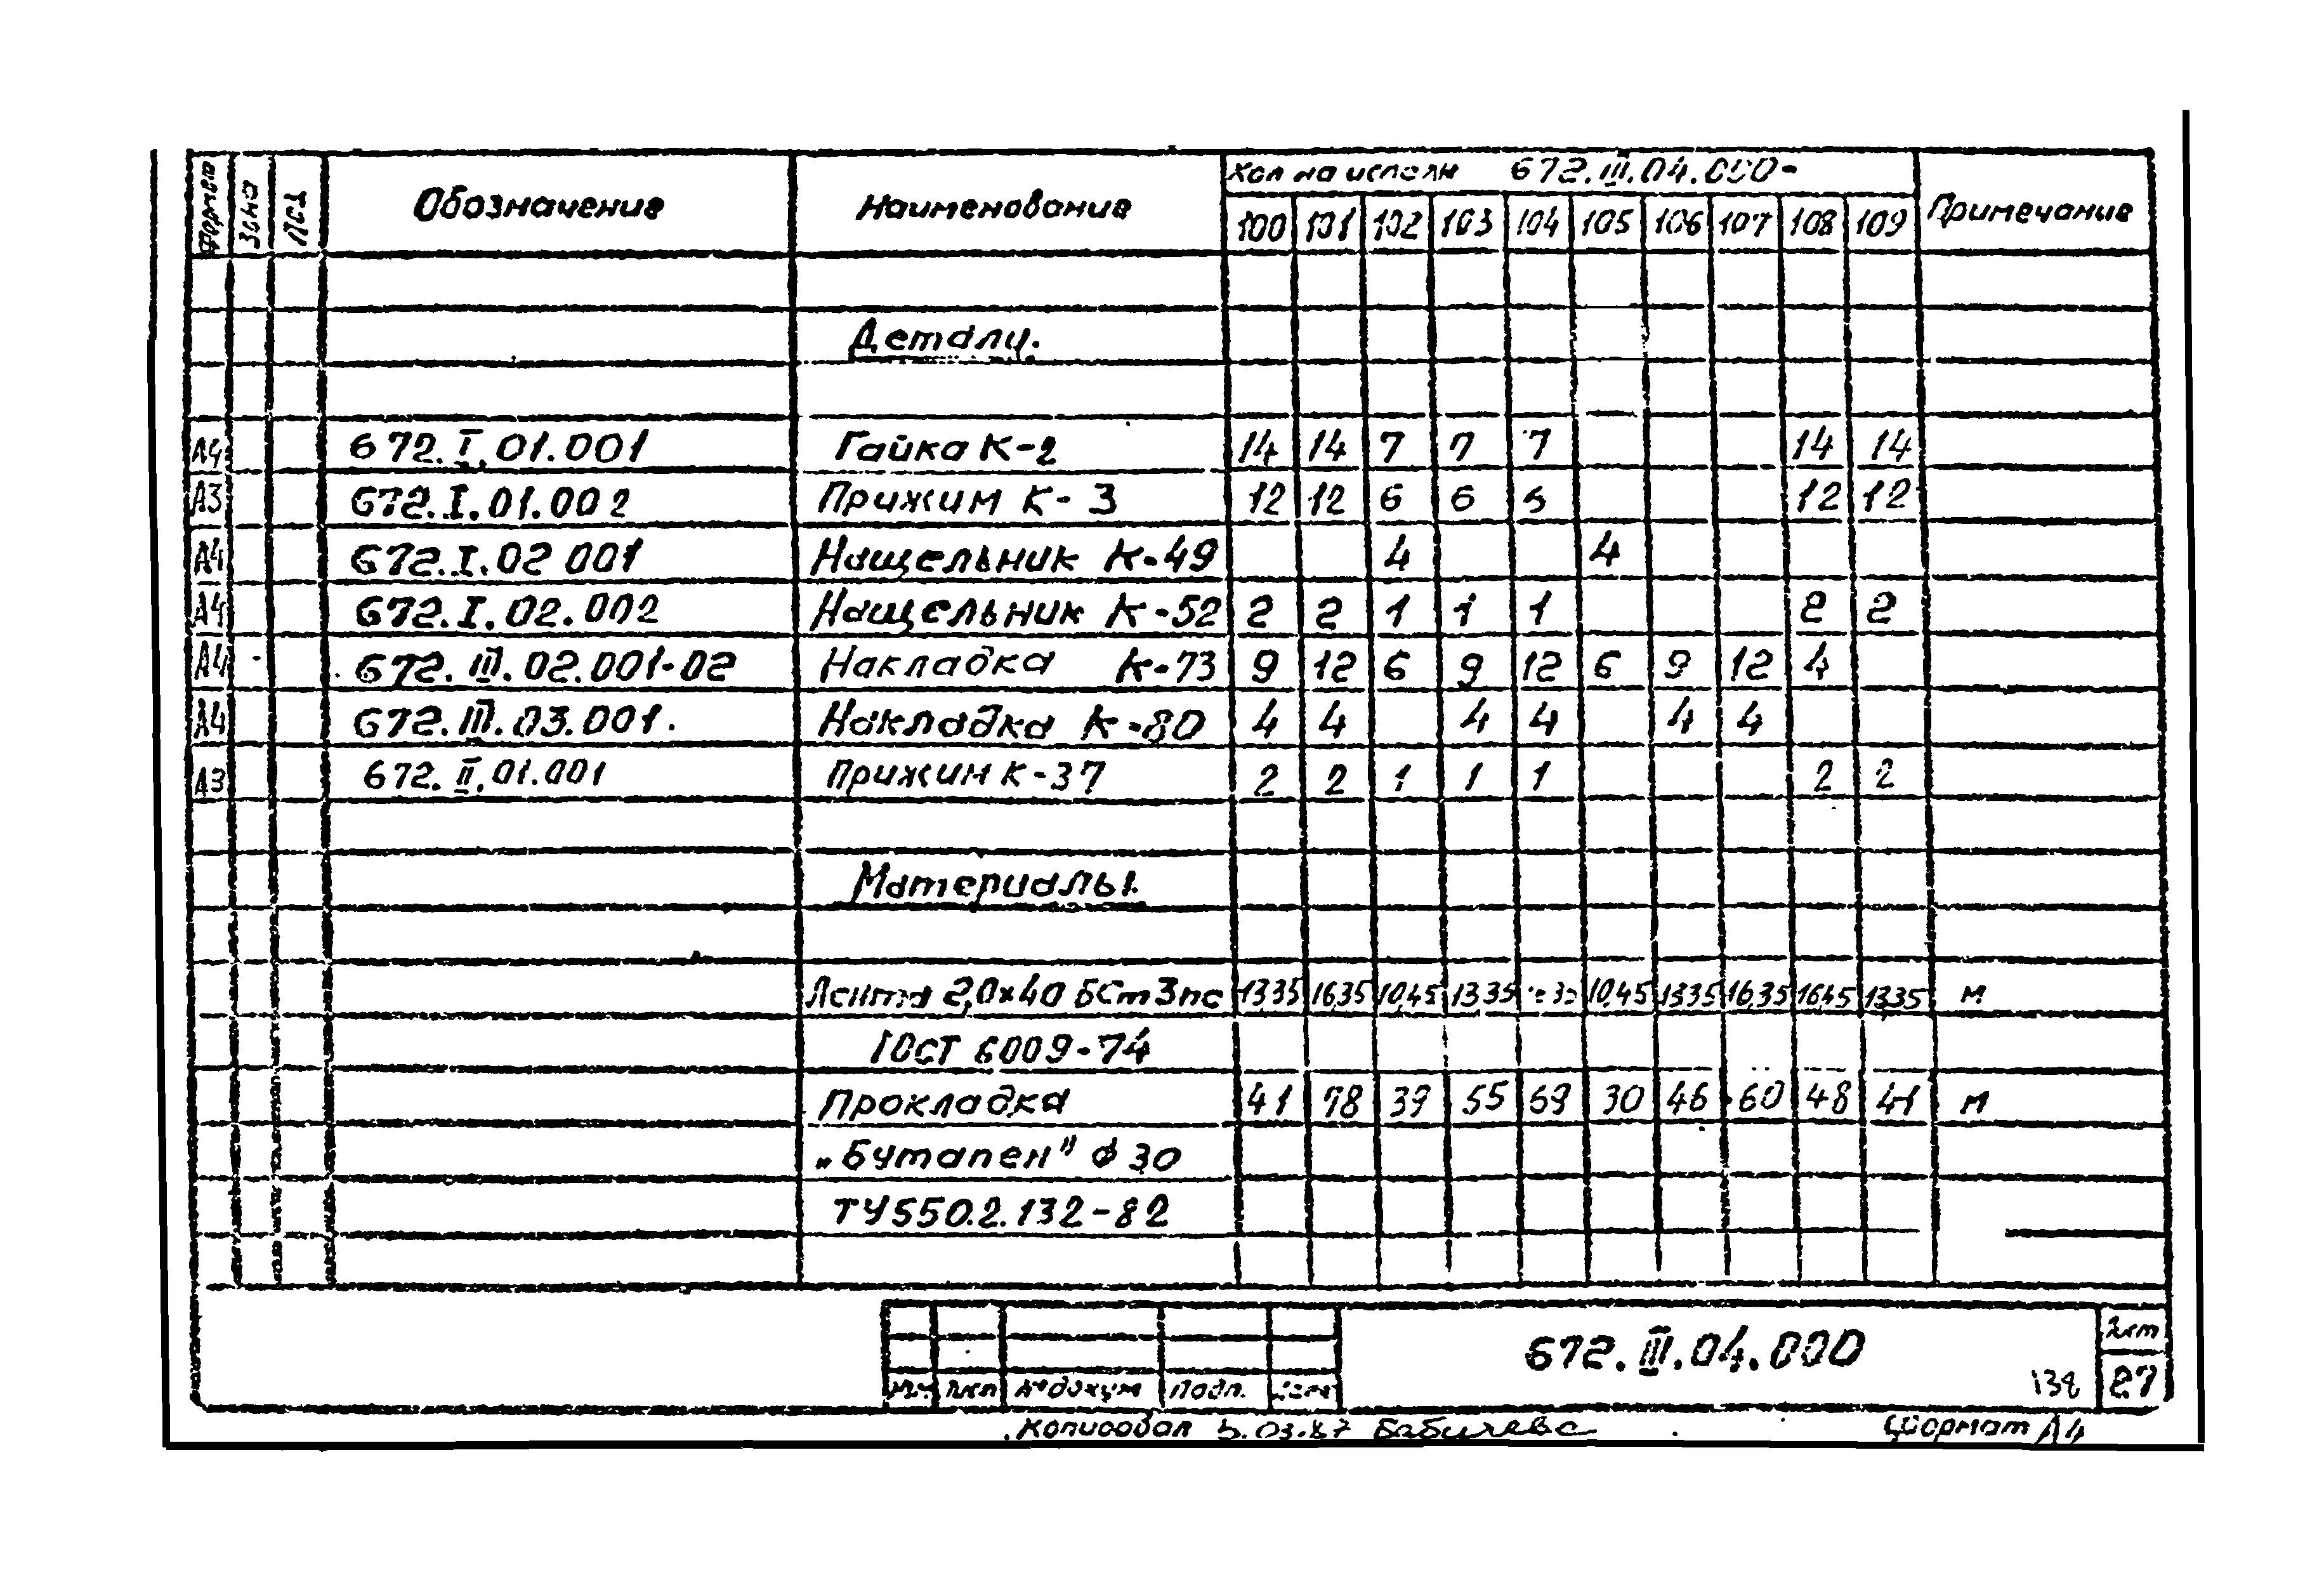 Формат Зона Поз. Обозначение Наименование Кол на исполн 672.III.04.000- Примечание
100 101 102 103 104 105 106 107 108 109
Детали.
А4 672.I.01.001 Гайка К-2 14 14 7 7 7 14 14
А3 672.I.01.002 Прижим К-3 12 12 6 6 6 12 12
А4 672.I.02 001 Нащельник К-49 4 4
А4 672.I.02.002 Нащельник К-52 2 2 1 1 1 2 2
А4 672.III.02.001-02 Накладка К-73 9 12 6 9 12 6 9 12 4
А4 672.III.03.001. Накладка К-80 4 4 4 4 4 4
А3 672.II.01.001 Прижим К-37 2 2 1 1 1 2 2
Материалы.
Лента 2,0х40 БСт3пс 13,35 16,35 10,45 13,35 10,45 13,35 16,35 16,45 13,35 м
ГОСТ 6009-74
Прокладка 41 78 39 55 69 30 46 60 48 41 м
„Бутапен" Ф 30
ТУ550.2.132-82
672.III.04.000 Лист
138 27
Изм. Лист № докум Подп. Дата
Копировал 5.03.87 Бабичева Формат А4